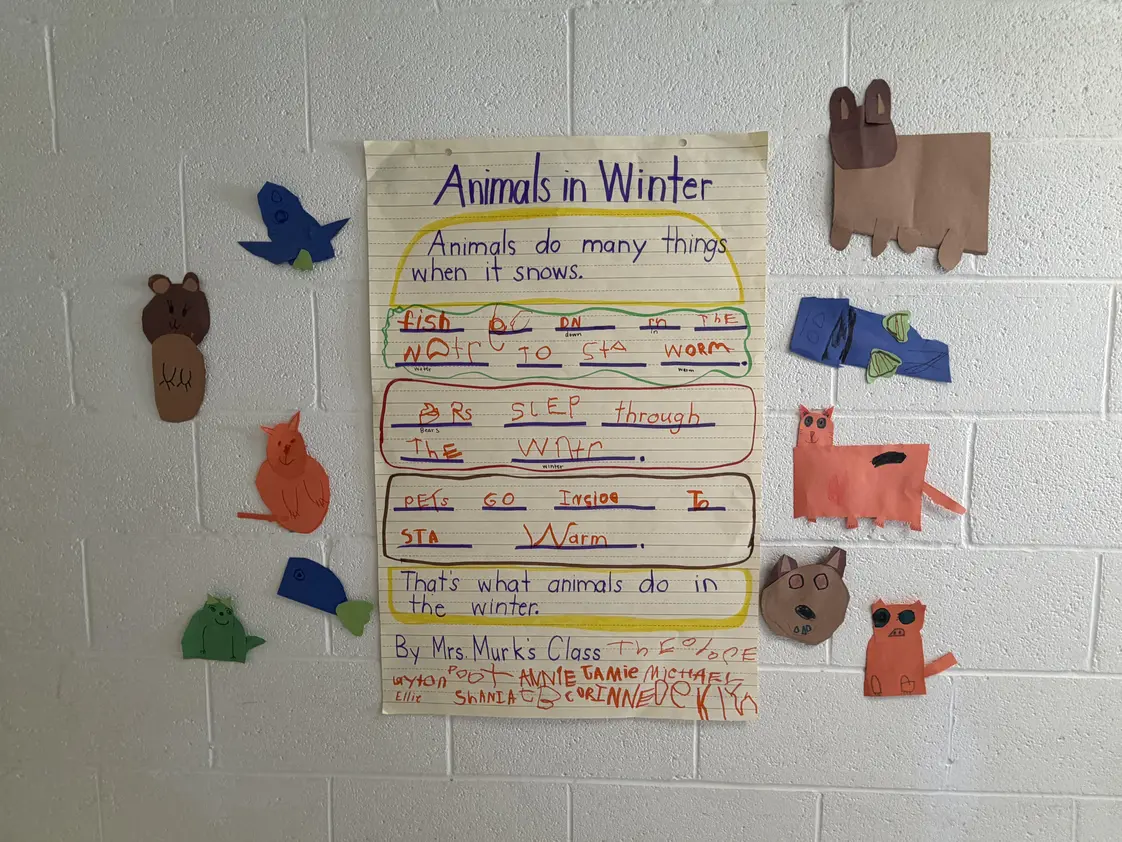 Animals in Winter
Animals do many things
when it snows.
fish DN in THE
down in
TO StA WORM.
water warm
Rs SLEP through
Bears
THE WNtr.
winter
PETs GO Insioe To
STA Warm.
That's what animals do in
the winter.
By Mrs. Murk's Class
ANNIE JAMie MiCHAEL
Ellie SHANIA CORINNE